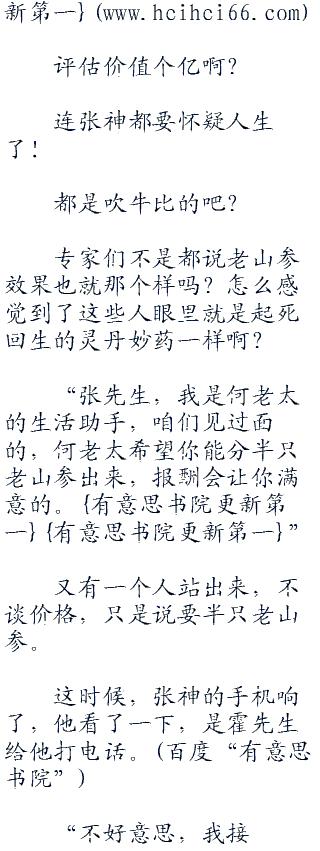 新第一}(www.hcihci66.com)
评估价值个亿啊?
连张神都要怀疑人生
了!
都是吹牛比的吧?
专家们不是都说老山参
效果也就那个样吗?怎么感
觉到了这些人眼里就是起死
回生的灵丹妙药一样啊?
“张先生，我是何老太
的生活助手，咱们见过面
的，何老太希望你能分半只
老山参出来，报酬会让你满
意的。{有意思书院更新第
一}{有意思书院更新第一}”
又有一个人站出来，不
谈价格，只是说要半只老山
参。
这时候，张神的手机响
了，他看了一下，是霍先生
给他打电话。(百度“有意思
书院”)
“不好意思，我接